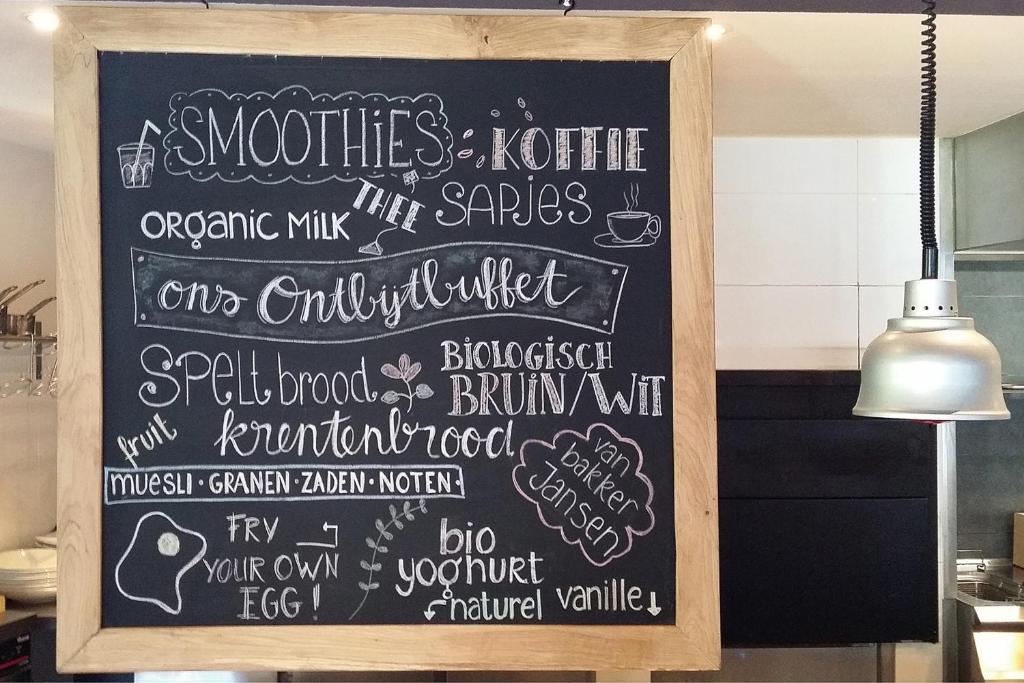 SMOOTHiES
KOFFIE
THEE
SAPJES
ORgANIC MiLK
ons Ontbijtbuffet
SPELtbrood
BiOLOGiSCH
BRUiN/WiT
krentenbrood
fruit
muesLi · GRANEN · ZADEN · NOTEN ·
van
bakker
Jansen
FRY
YOUR OWN
EGG!
bio
yoghurt
naturel
vanille